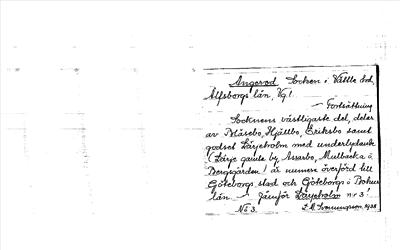 Angered Socken i Vättle hd,
Älfsborgs län, Vg!
— Fortsättning
Socknens västligaste del, delar
av Blåsebo, Hjällbo, Eriksbo samt
godset Lärjeholm med underlydande
(Lärje gamla by, Assarbo, Mulbacka o
Bergsgården) är numera överförd till
Göteborgs stad och Göteborgs o Bohus
län — Jämför Lärjeholm nr 3!
No 3. 1938